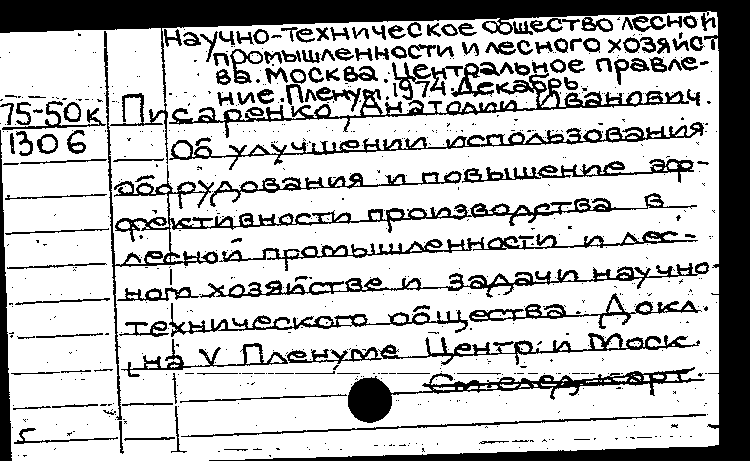 Научно-техническое общество лесной
промышленности и лесного хозяйст
ва. Москва. Центральное правле-
ние. Пленум. 1974. Декабрь.
75-50к Писаренко, Анатолий Иванович.
1306 Об улучшении использования
оборудования и повышение эф-
фективности производства в
лесной промышленности и лес-
ном хозяйстве и задачи научно-
технического общества. Докл.
на V Пленуме Центр. и Моск.
См. след. карт.
5